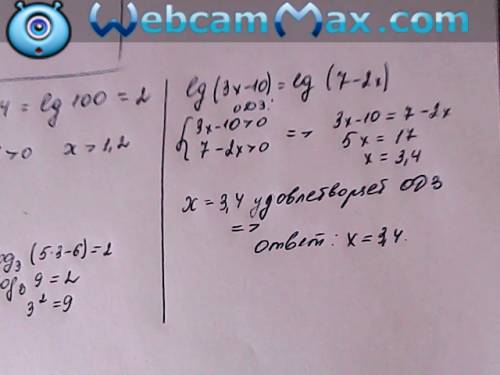 WebcamMax.com
4 = lg 100 = 2
>0 x > 1,2
(5·3-6) = 2
9 = 2
3² = 9
lg (3x-10) = lg (7-2x)
ОДЗ:
{3x-10>0 => 3x-10 = 7-2x
7-2x>0 5x = 17
x = 3,4
x = 3,4 удовлетворяет ОДЗ
=>
ответ: x = 3,4.